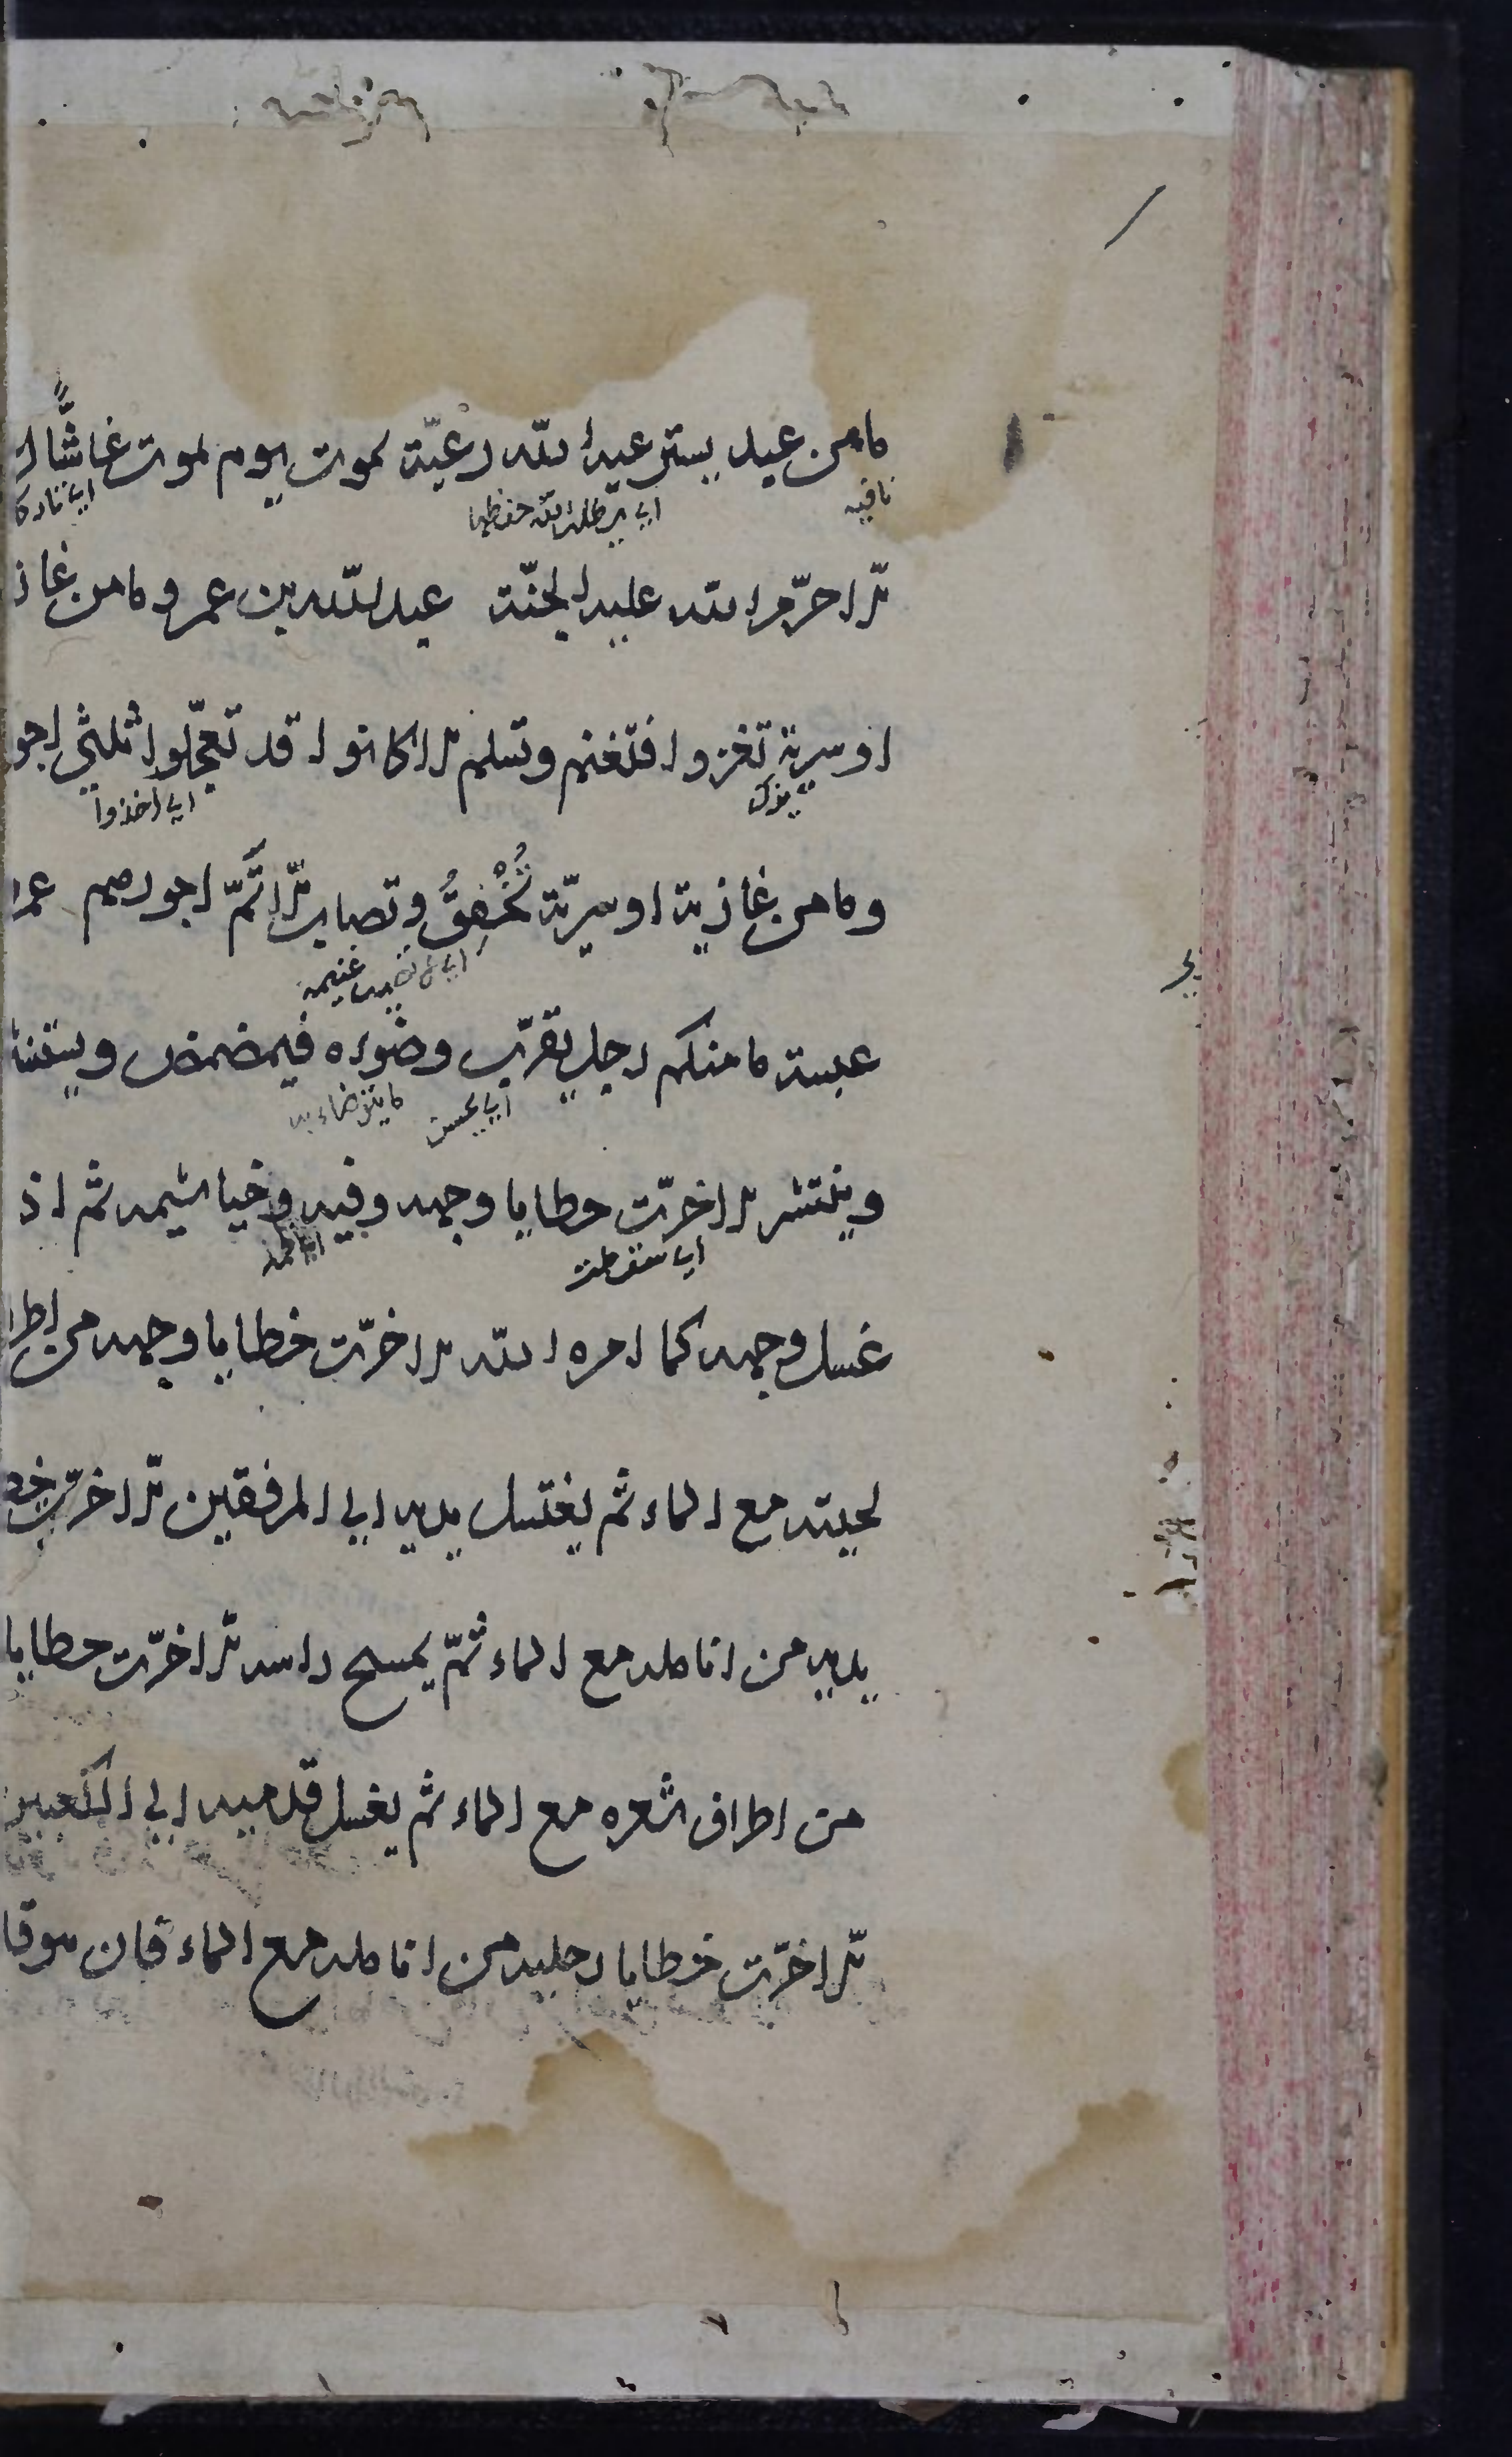 ما من عبد يسترعيه الله رعيّة يموت يوم يموت غاشًّا
نافيه اي يطلب الله حفظها اي تاركا
الا حرّم الله عليه الجنّة عبد الله بن عمرو ما من غاز
او سرية تغزوا فتغنم وتسلم الا كانوا قد تعجّلوا ثلثي اجو
اي اخذوا
وما من غازية او سريّة تُخْفِقُ وتصاب الا تَمّ اجورهم عمر
اي لا تصيب غنيمة
عبسة ما منكم رجل يقرّب وضوءه فيمضمض ويستنشا
اي يحسن ما يتوضاء به
وينتشر الا خرّت خطايا وجهه وفيه وخياشيمه ثم اذ
اي سقطت
غسل وجهه كما امره الله الا خرّت خطايا وجهه من اطرا
لحيته مع الماء ثم يغتسل يديه الي المرفقين الا خرّت خط
يديه من انامله مع الماء ثمّ يمسح راسه الا خرّت خطايا
من اطراف شعره مع الماء ثم يغسل قدميه الي الكعبين
الا خرّت خطايا رجليه من انامله مع الماء فان هو قا